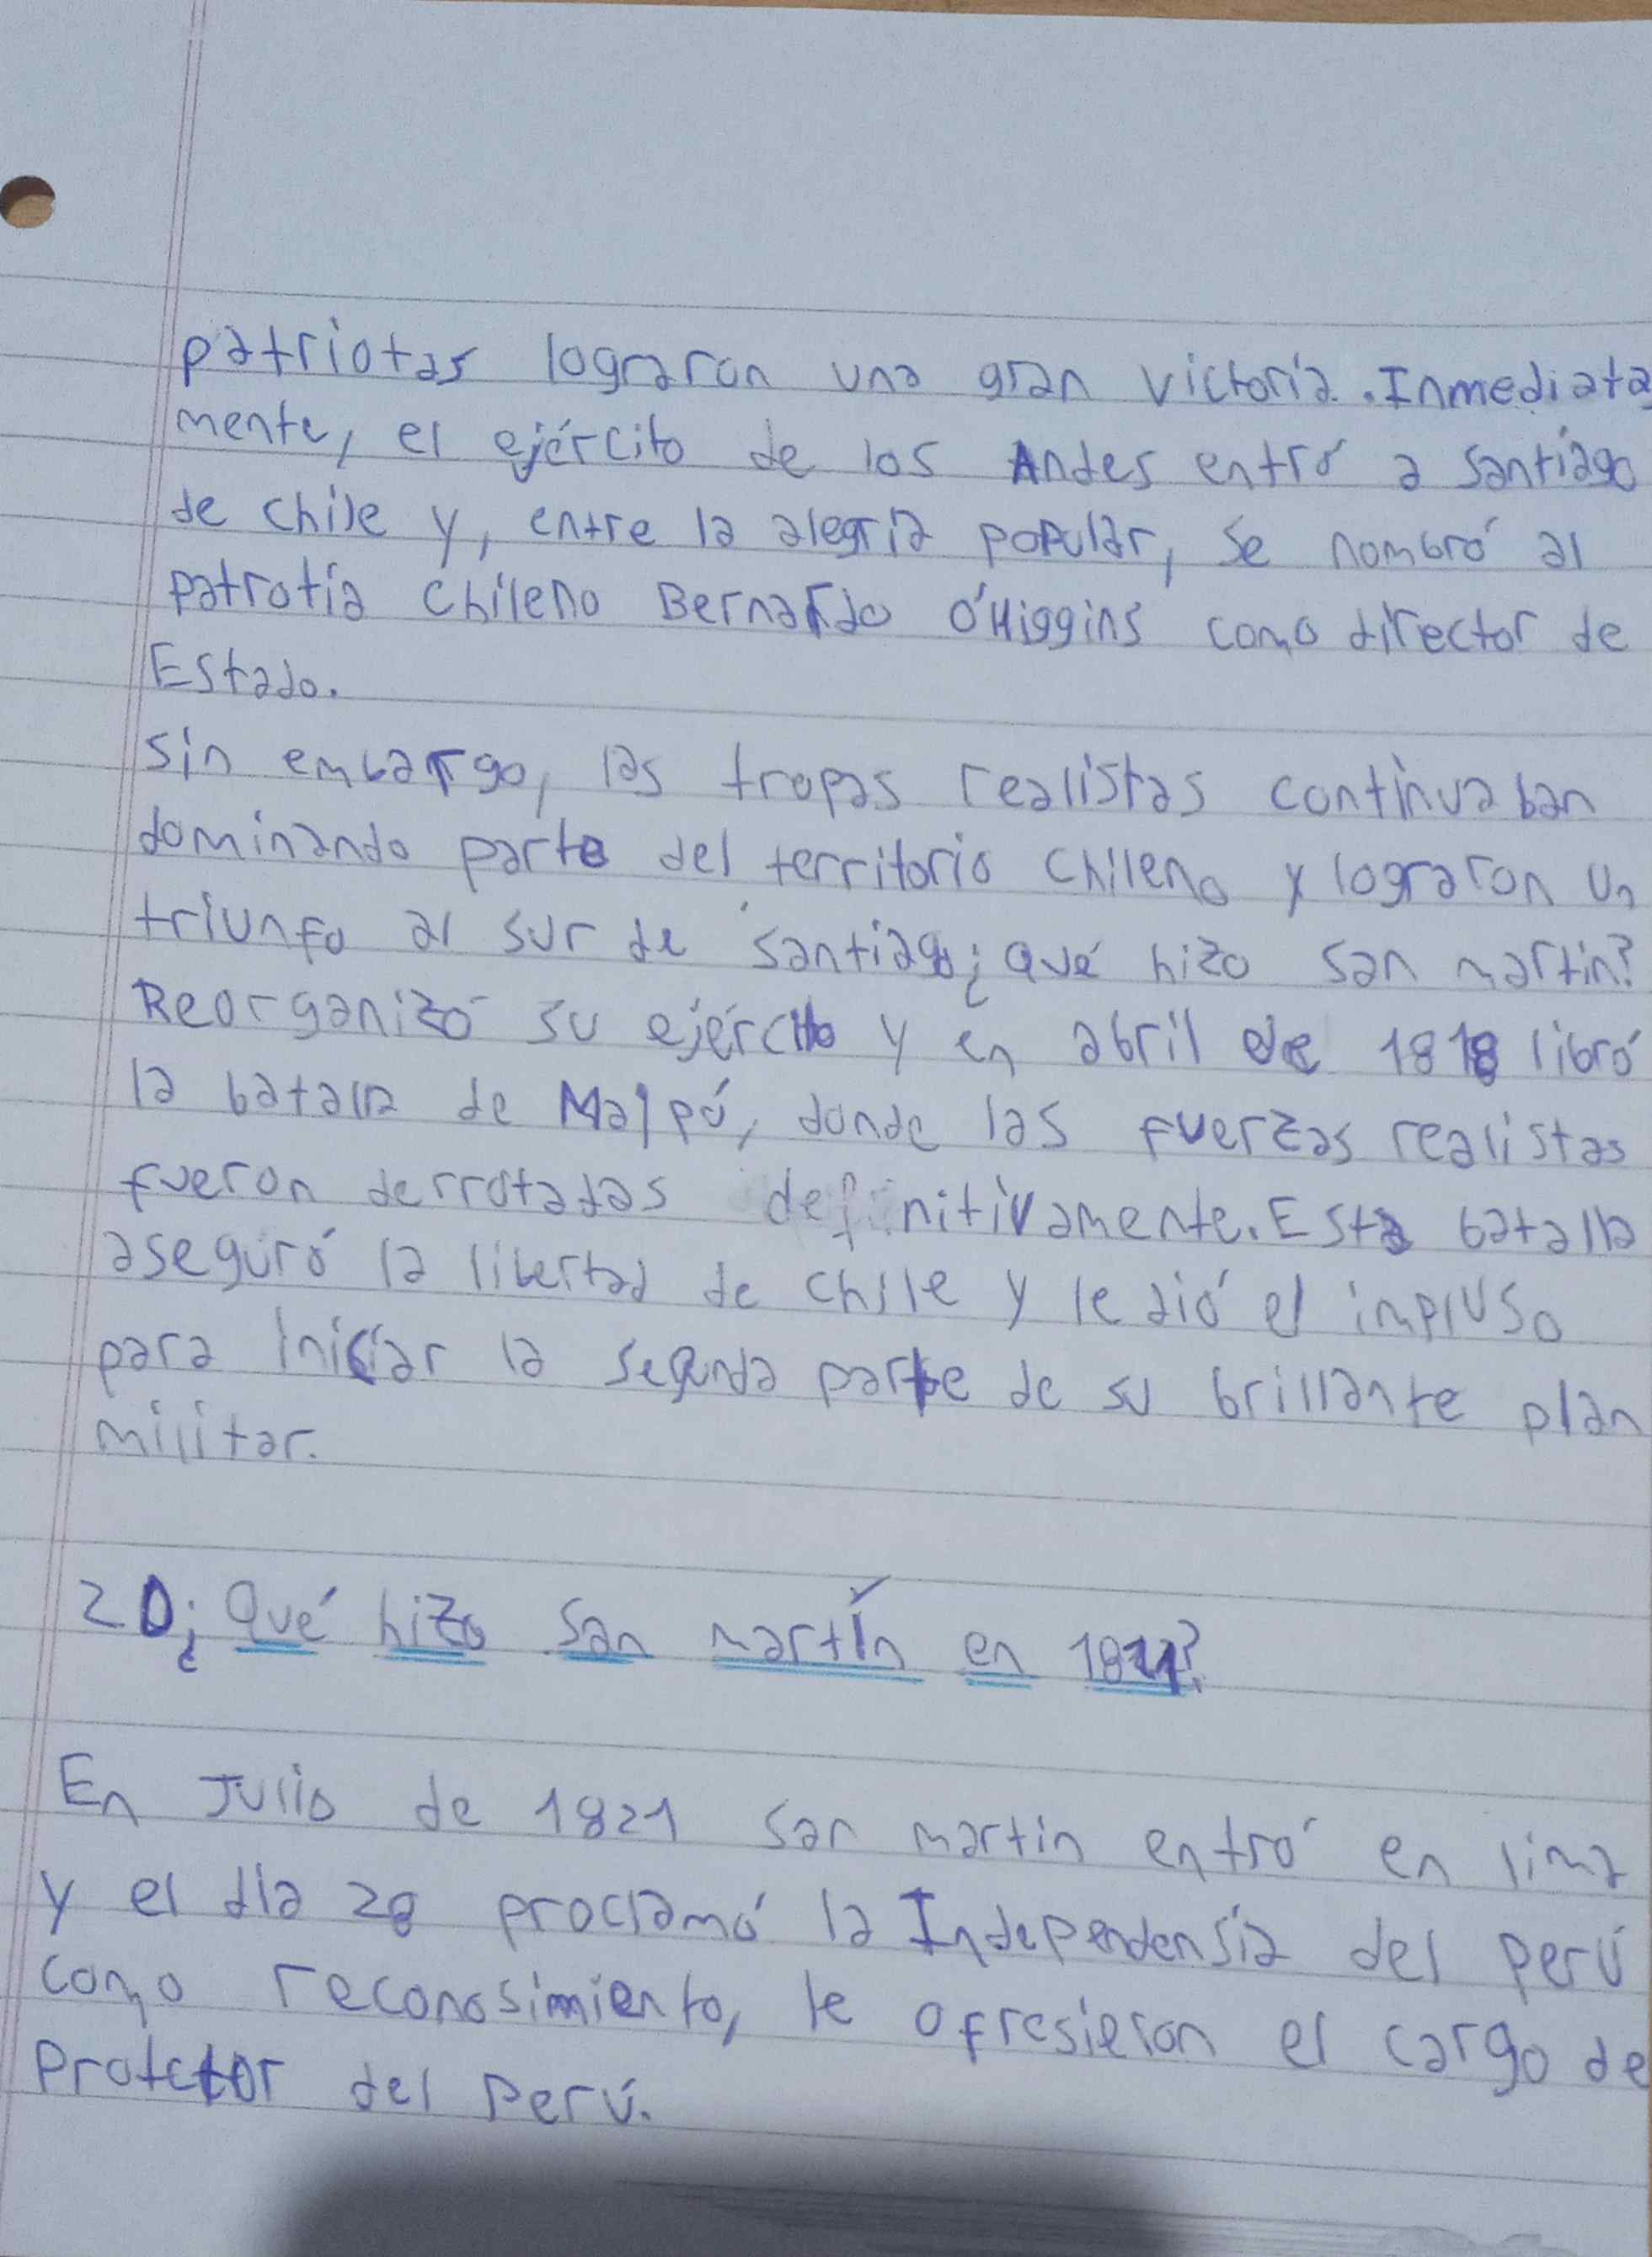 patriotas lograron una gran victoria. Inmediata
mente, el ejército de los Andes entró a santiago
de chile y, entre la alegria popular, se nombró al
patrotia chileno Bernardo O'Higgins como director de
Estado.
sin embargo, las tropas realistas continuaban
dominando parte del territorio chileno y lograron un
triunfo al sur de santiago ¿qué hizo san martin?
Reorganizó su ejército y en abril de 1818 libró
la batalla de Maipú, donde las fuerzas realistas
fueron derrotadas definitivamente. Esta batalla
aseguró la libertad de chile y le dió el impluso
para iniciar la segunda parte de su brillante plan
militar.
2D ¿Qué hizo san martín en 1821?
En Julio de 1821 san martin entró en lima
y el día 28 proclamó la Independensia del perú
como reconosimiento, le ofresieron el cargo de
Protector del perú.